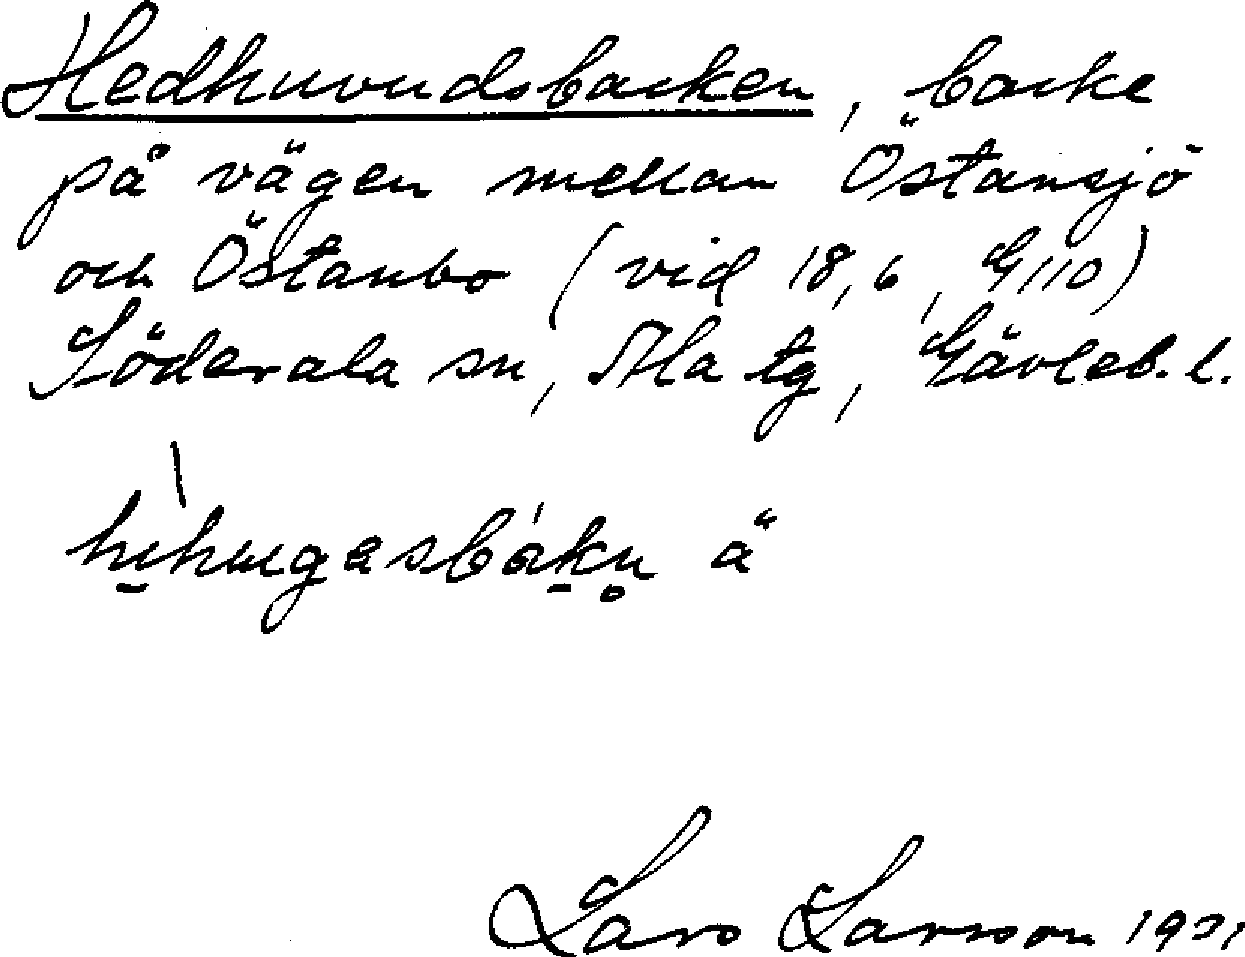 Hedhuvudsbacken, backe
på vägen mellan Östansjö
och Östanbo (vid 18,6, G110)
Söderala sn, Ala tg, Gävleb. l.
ä
Lars Larsson